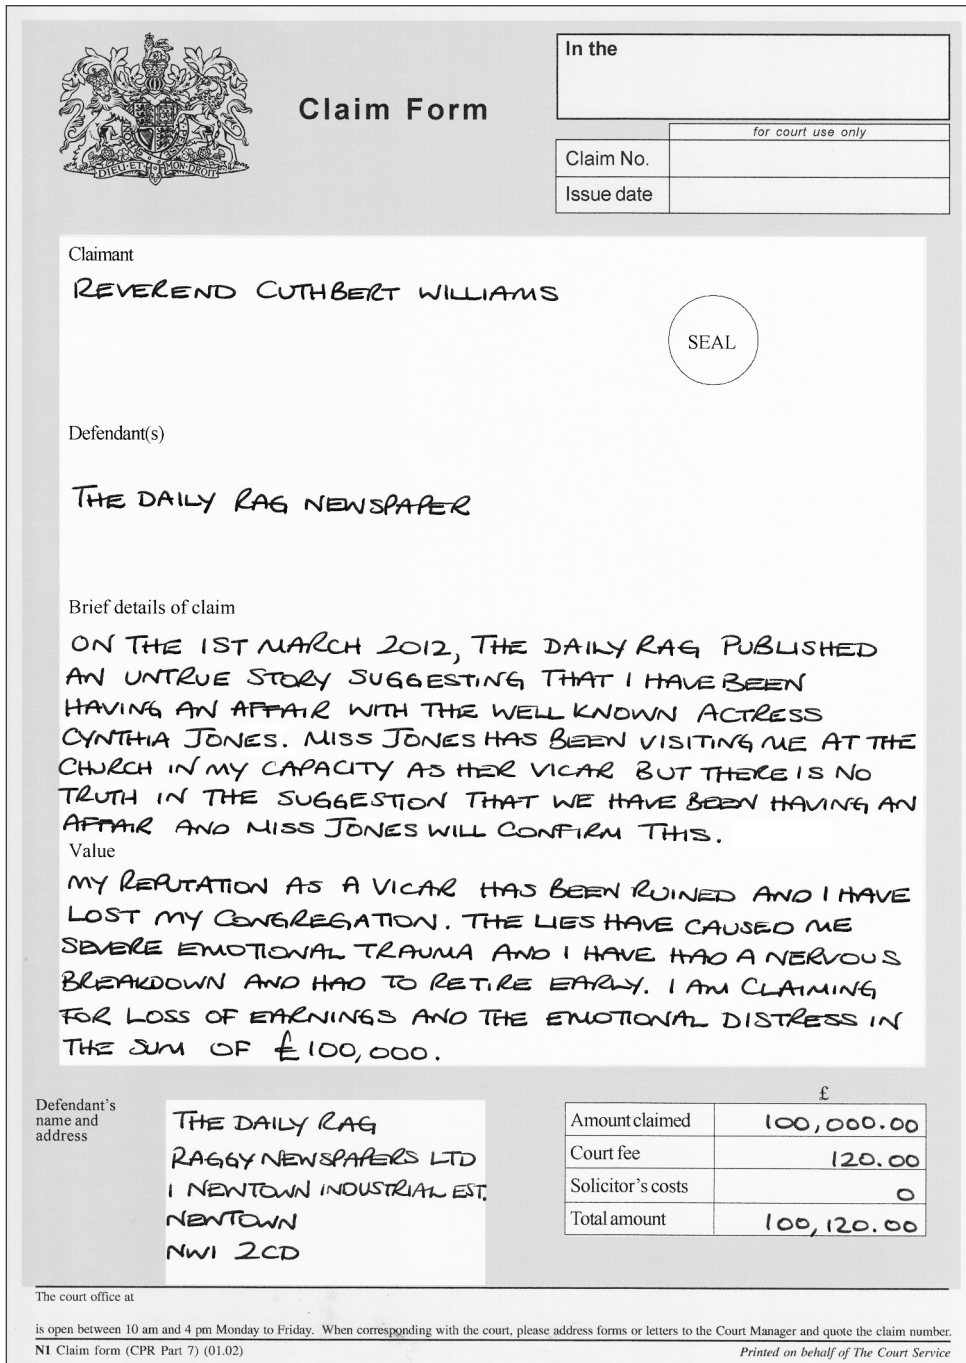 In the
Claim Form
for court use only
Claim No.
Issue date
DIEU·ET·MON·DROIT
Claimant
REVEREND CUTHBERT WILLIAMS
SEAL
Defendant(s)
THE DAILY RAG NEWSPAPER
Brief details of claim
ON THE 1ST MARCH 2012, THE DAILY RAG PUBLISHED
AN UNTRUE STORY SUGGESTING THAT I HAVE BEEN
HAVING AN AFFAIR WITH THE WELL KNOWN ACTRESS
CYNTHIA JONES. MISS JONES HAS BEEN VISITING ME AT THE
CHURCH IN MY CAPACITY AS HER VICAR BUT THERE IS NO
TRUTH IN THE SUGGESTION THAT WE HAVE BEEN HAVING AN
AFFAIR AND MISS JONES WILL CONFIRM THIS.
Value
MY REPUTATION AS A VICAR HAS BEEN RUINED AND I HAVE
LOST MY CONGREGATION. THE LIES HAVE CAUSED ME
SEVERE EMOTIONAL TRAUMA AND I HAVE HAD A NERVOUS
BREAKDOWN AND HAD TO RETIRE EARLY. I AM CLAIMING
FOR LOSS OF EARNINGS AND THE EMOTIONAL DISTRESS IN
THE SUM OF £100,000.
Defendant's
name and
address
THE DAILY RAG
RAGGY NEWSPAPERS LTD
1 NEWTOWN INDUSTRIAL EST.
NEWTOWN
NW1 2CD
£
Amount claimed 100,000.00
Court fee 120.00
Solicitor's costs 0
Total amount 100,120.00
The court office at
is open between 10 am and 4 pm Monday to Friday. When corresponding with the court, please address forms or letters to the Court Manager and quote the claim number.
N1 Claim form (CPR Part 7) (01.02)
Printed on behalf of The Court Service